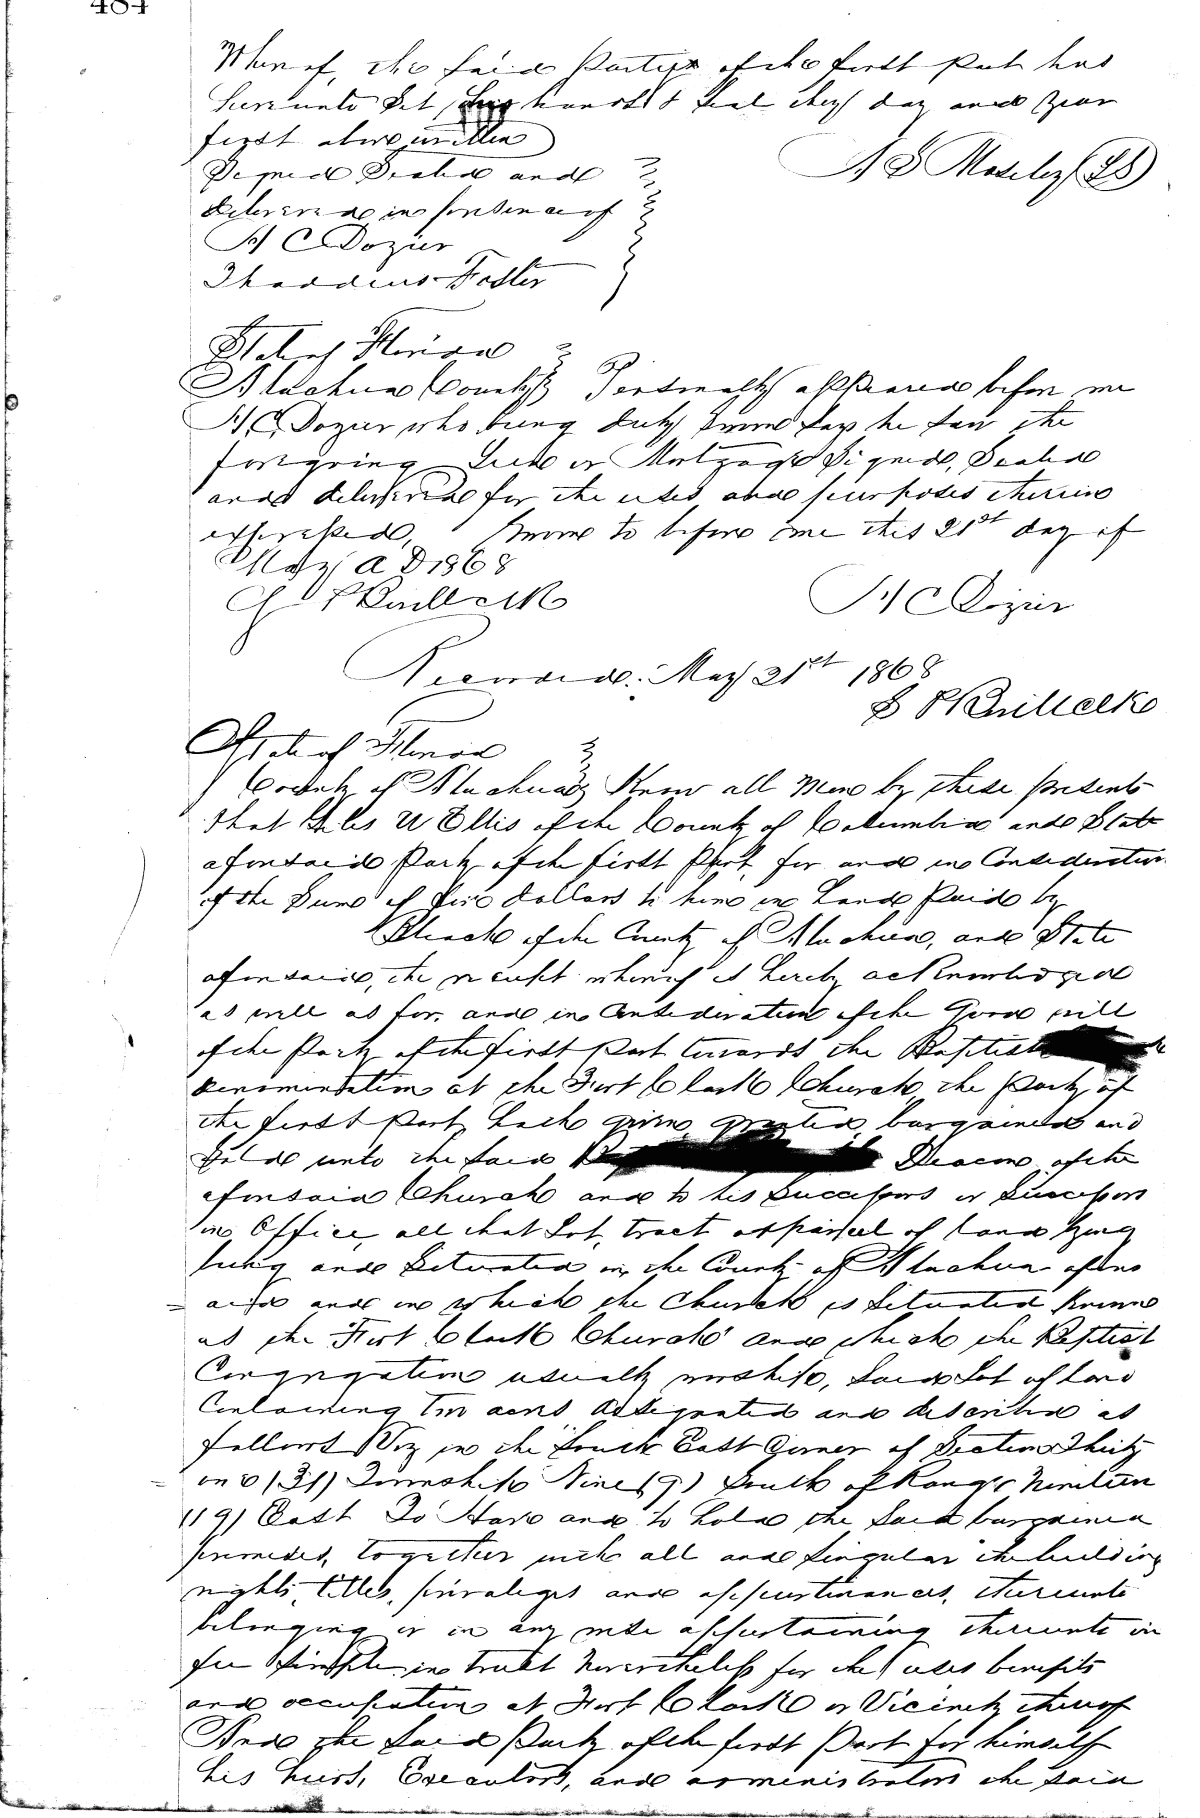 484
Whereof, the said Parties of the first Part has
hereunto Set his hands & Seal they day and year
first above written
Signed Sealed and A S Moseley (LS)
delivered in presence of
H C Dozier
Thaddeus Foster
State of Florida
Alachua County Personally appeared before me
H C Dozier who being duly sworn says he saw the
foregoing Deed or Mortgage Signed, Sealed
and delivered for the uses and purposes therein
expressed, Sworn to before me this 21st day of
May A D 1868
H C Dozier
Recorded May 21st 1868
State of Florida
County of Alachua Know all Men by these presents
that Giles U Ellis of the County of Columbia and State
aforesaid Party of the first Part, for and in Consideration
of the Sum of five dollars to him in hand Paid by
Black of the County of Alachua, and State
aforesaid, the receipt whereof is hereby acknowledged
as well as for, and in Consideration of the Good will
of the Party of the first Part towards the Baptist
denomination at the Fort Clark Church, the Party of
the first Part, hath given, granted, bargained and
Sold unto the said Deacon of the
aforesaid Church and to his Successors or Successors
in Office, all that Lot, tract or parsel of land lying
being and Situated in the County of Alachua afores
= aid and in which the Church is Situated Known
as the Fort Clark Church and which the Baptist
Congregation usually worship, Said Lot of land
Containing two acres designated and described as
follows Viz in the South East Corner of Section Thirty
one (31) Township Nine (9) South of Range Nineteen
(19) East To Have and to hold the Said bargained
premises, together with all and Singular the building
rights, titles, privaleges and appurtinances, thereunto
belonging or in any wise appurtaining thereunto in
fee Simple in trust Nevertheless for the uses benefits
and occupation at Fort Clark or Vicinity thereof
And the Said Party of the first Part for himself
his heirs, Executors, and administrators the said